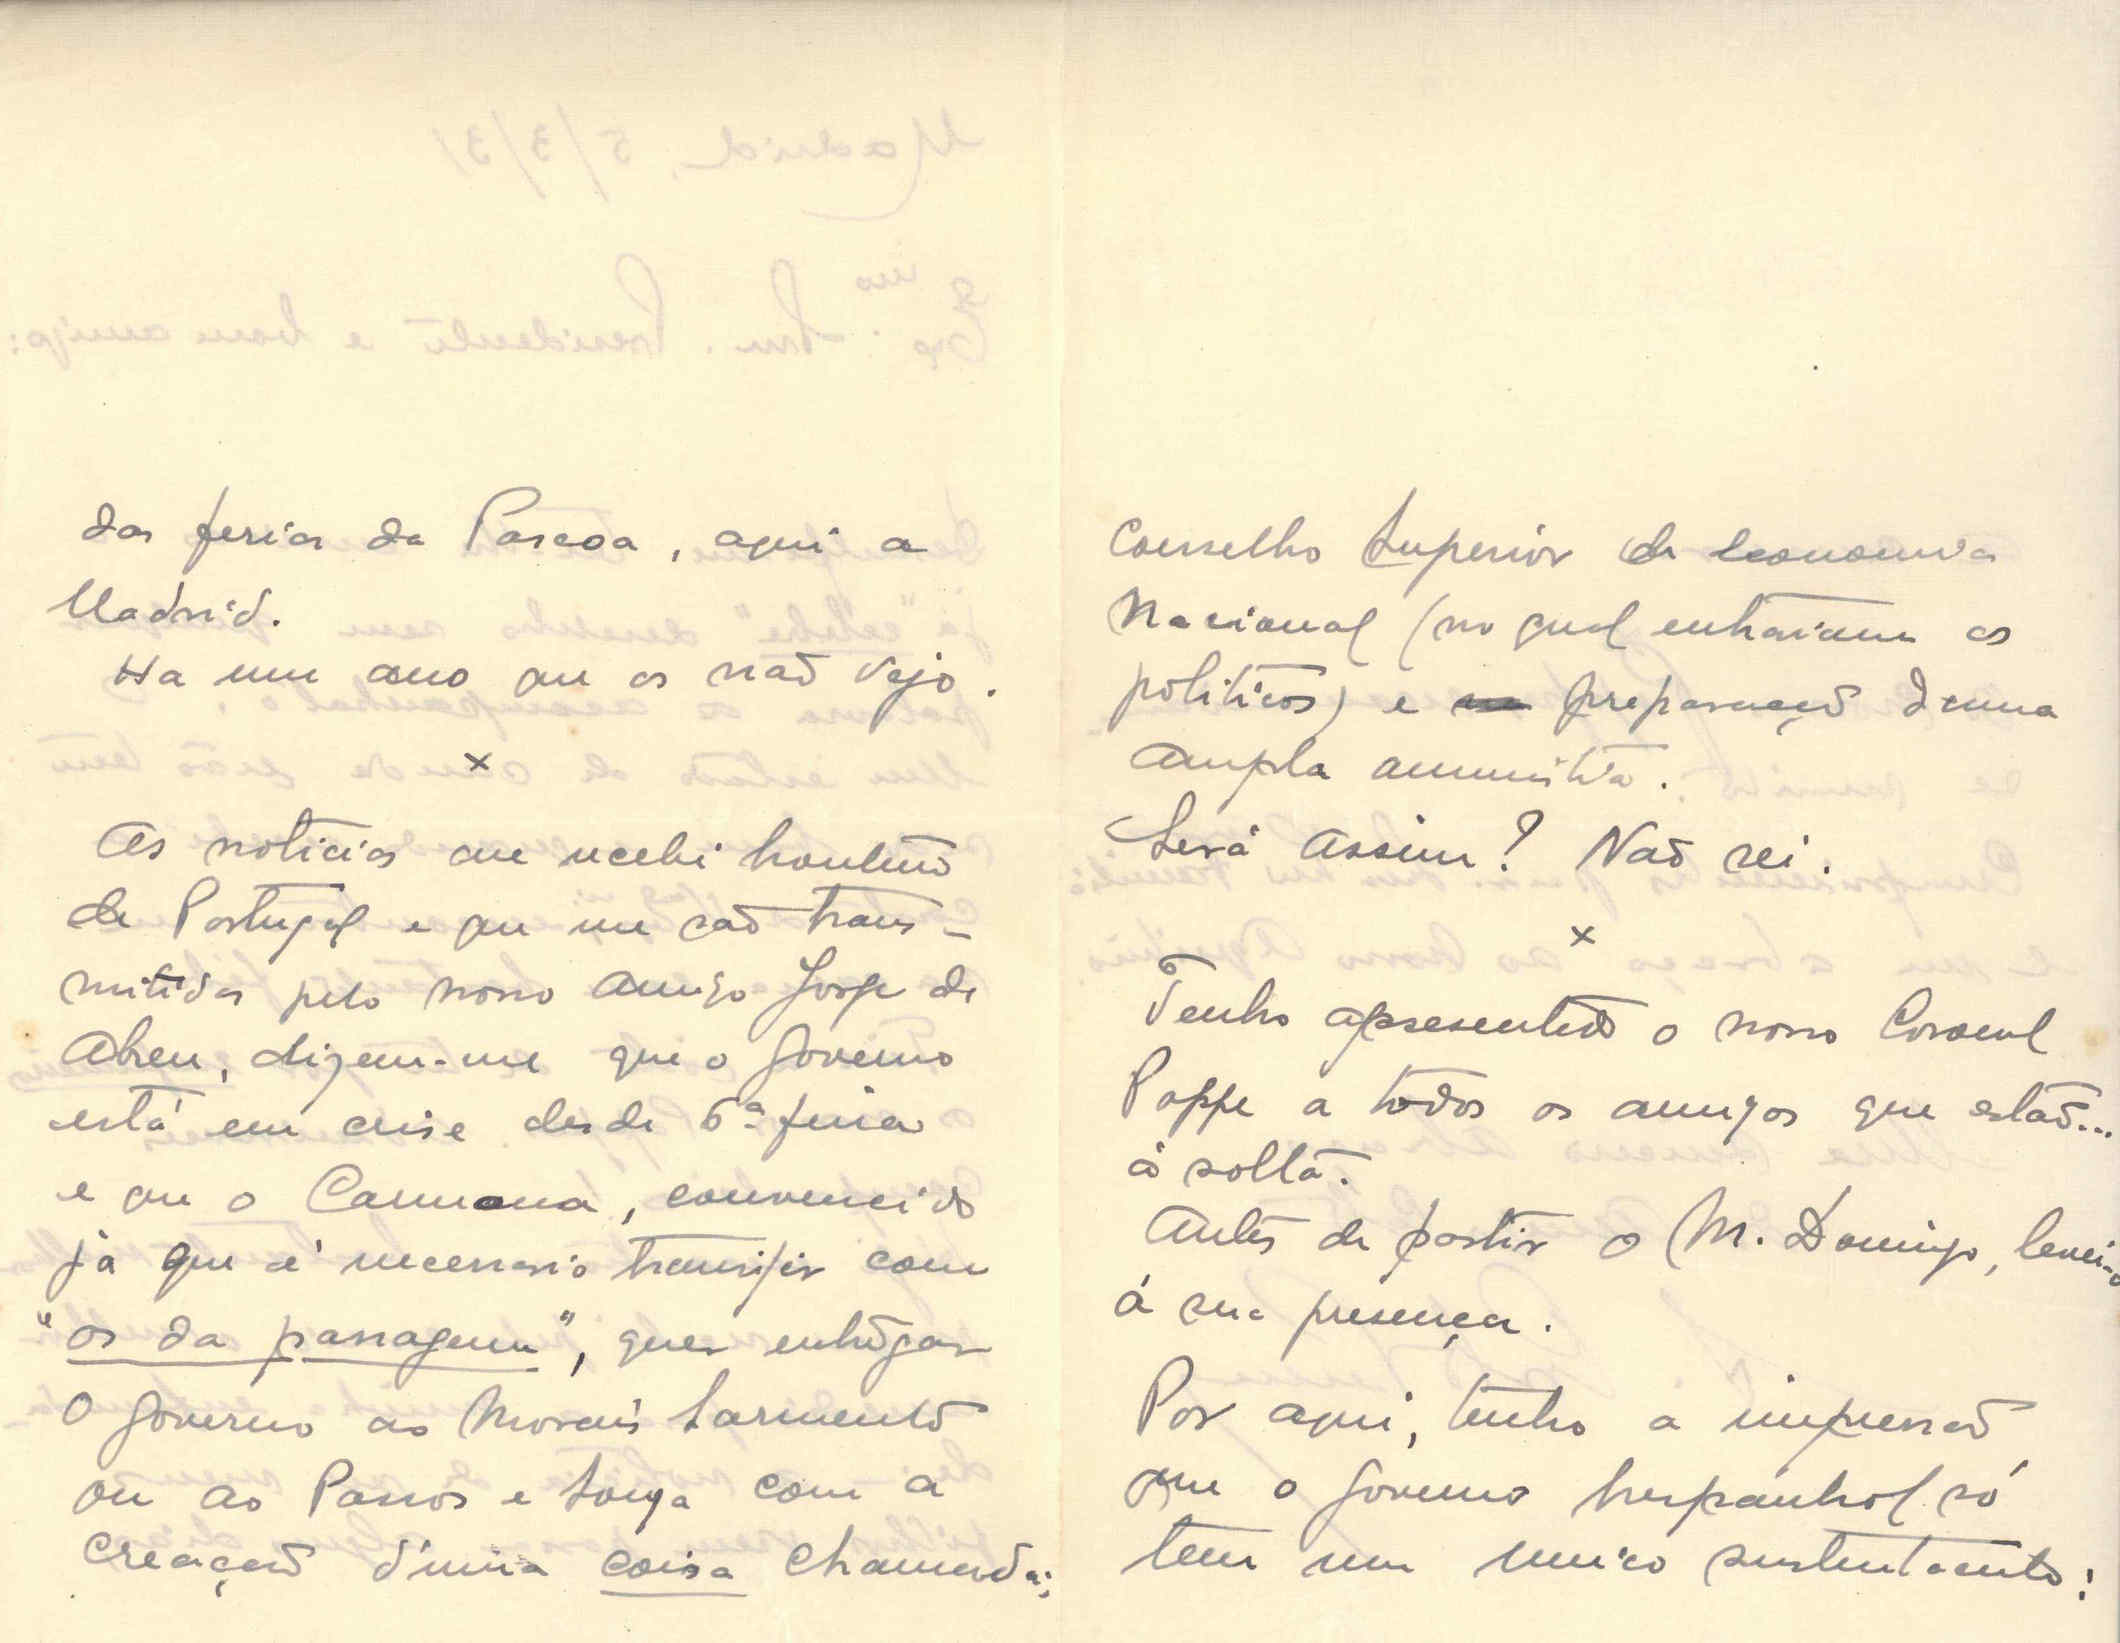 das ferias da Pascoa, aqui a
Madrid.
Ha um ano que os não vejo.
x
As noticias que recebi hontem
de Portugal e que me são trans-
mitidas pelo nosso amigo Jorge de
Abreu, dizem-me que o governo
está em crise desde 6ª feira
e que o Carmona, convencido
já que é necessario transigir com
"os da passagem", quer entregar
o governo ao Morais Sarmento
ou ao Passos e Sousa com a
creação d'uma coisa chamada:
Conselho Superior de Economia
Nacional (no qual entrariam os
politicos) e preparação duma
ampla amnistia.
Será assim? Não sei.
x
Tenho apresentado o nosso Coronel
Poppe a todos os amigos que estão...
á solta.
Antes de partir o M. Domingo, levei-o
á sua presença.
Por aqui, tenho a impressão
que o governo hespanhol só
tem um unico sustentaculo: